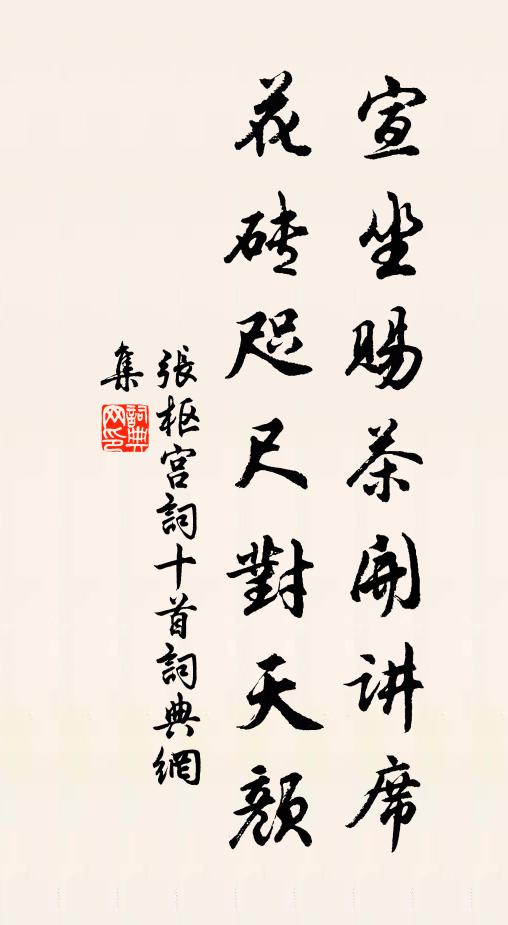 宣坐賜茶開讲席
花砖咫尺對天顔
張枢宫詞十首詞典網
集
詞典网印